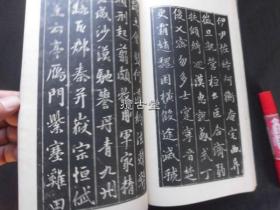 伊尹佐時阿衡奄宅曲阜
微旦孰營桓公匡合濟弱
扶傾綺迴漢惠說感武丁
俊乂密勿多士寔寧晉楚
更霸趙魏困橫假途滅虢
刑起翦頗牧用軍最精
宣威沙漠馳譽丹青九州
禹跡百郡秦并嶽宗恒岱
云亭鴈門紫塞雞田